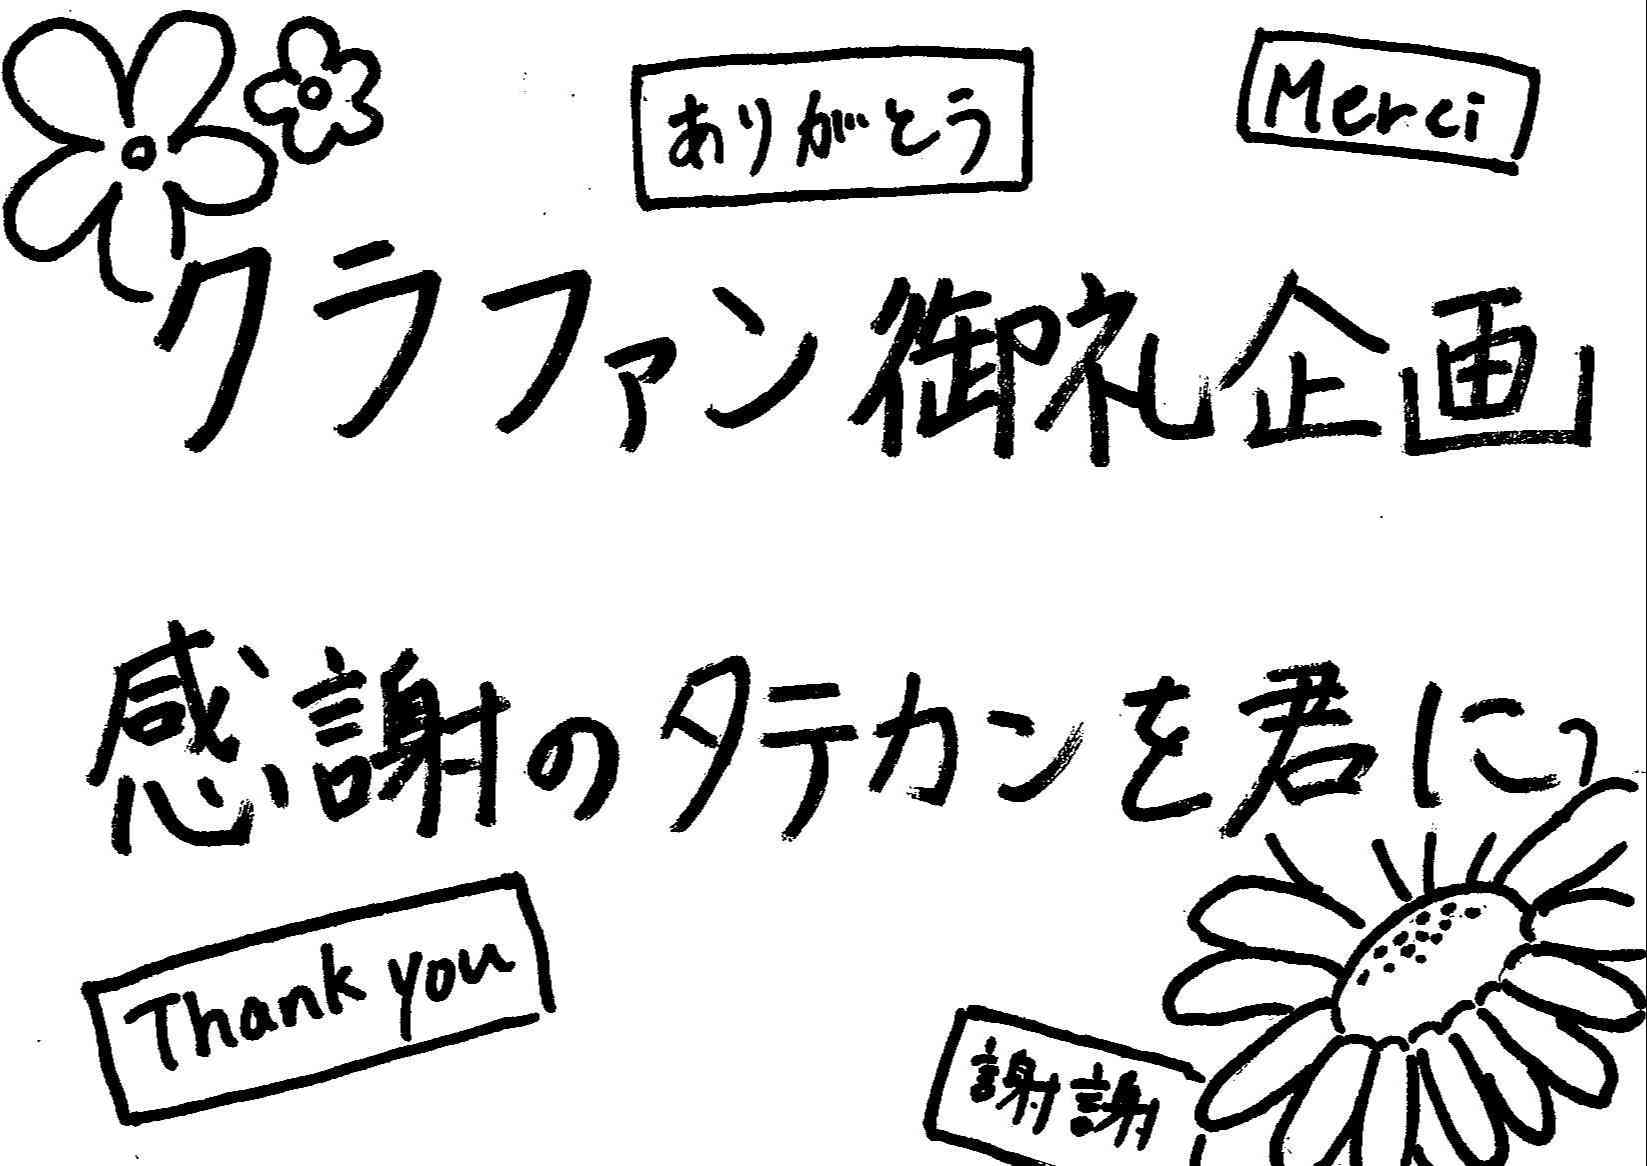 ありがとう
Merci
クラファン御礼企画
感謝のタテカンを君にっ
Thank you
謝謝